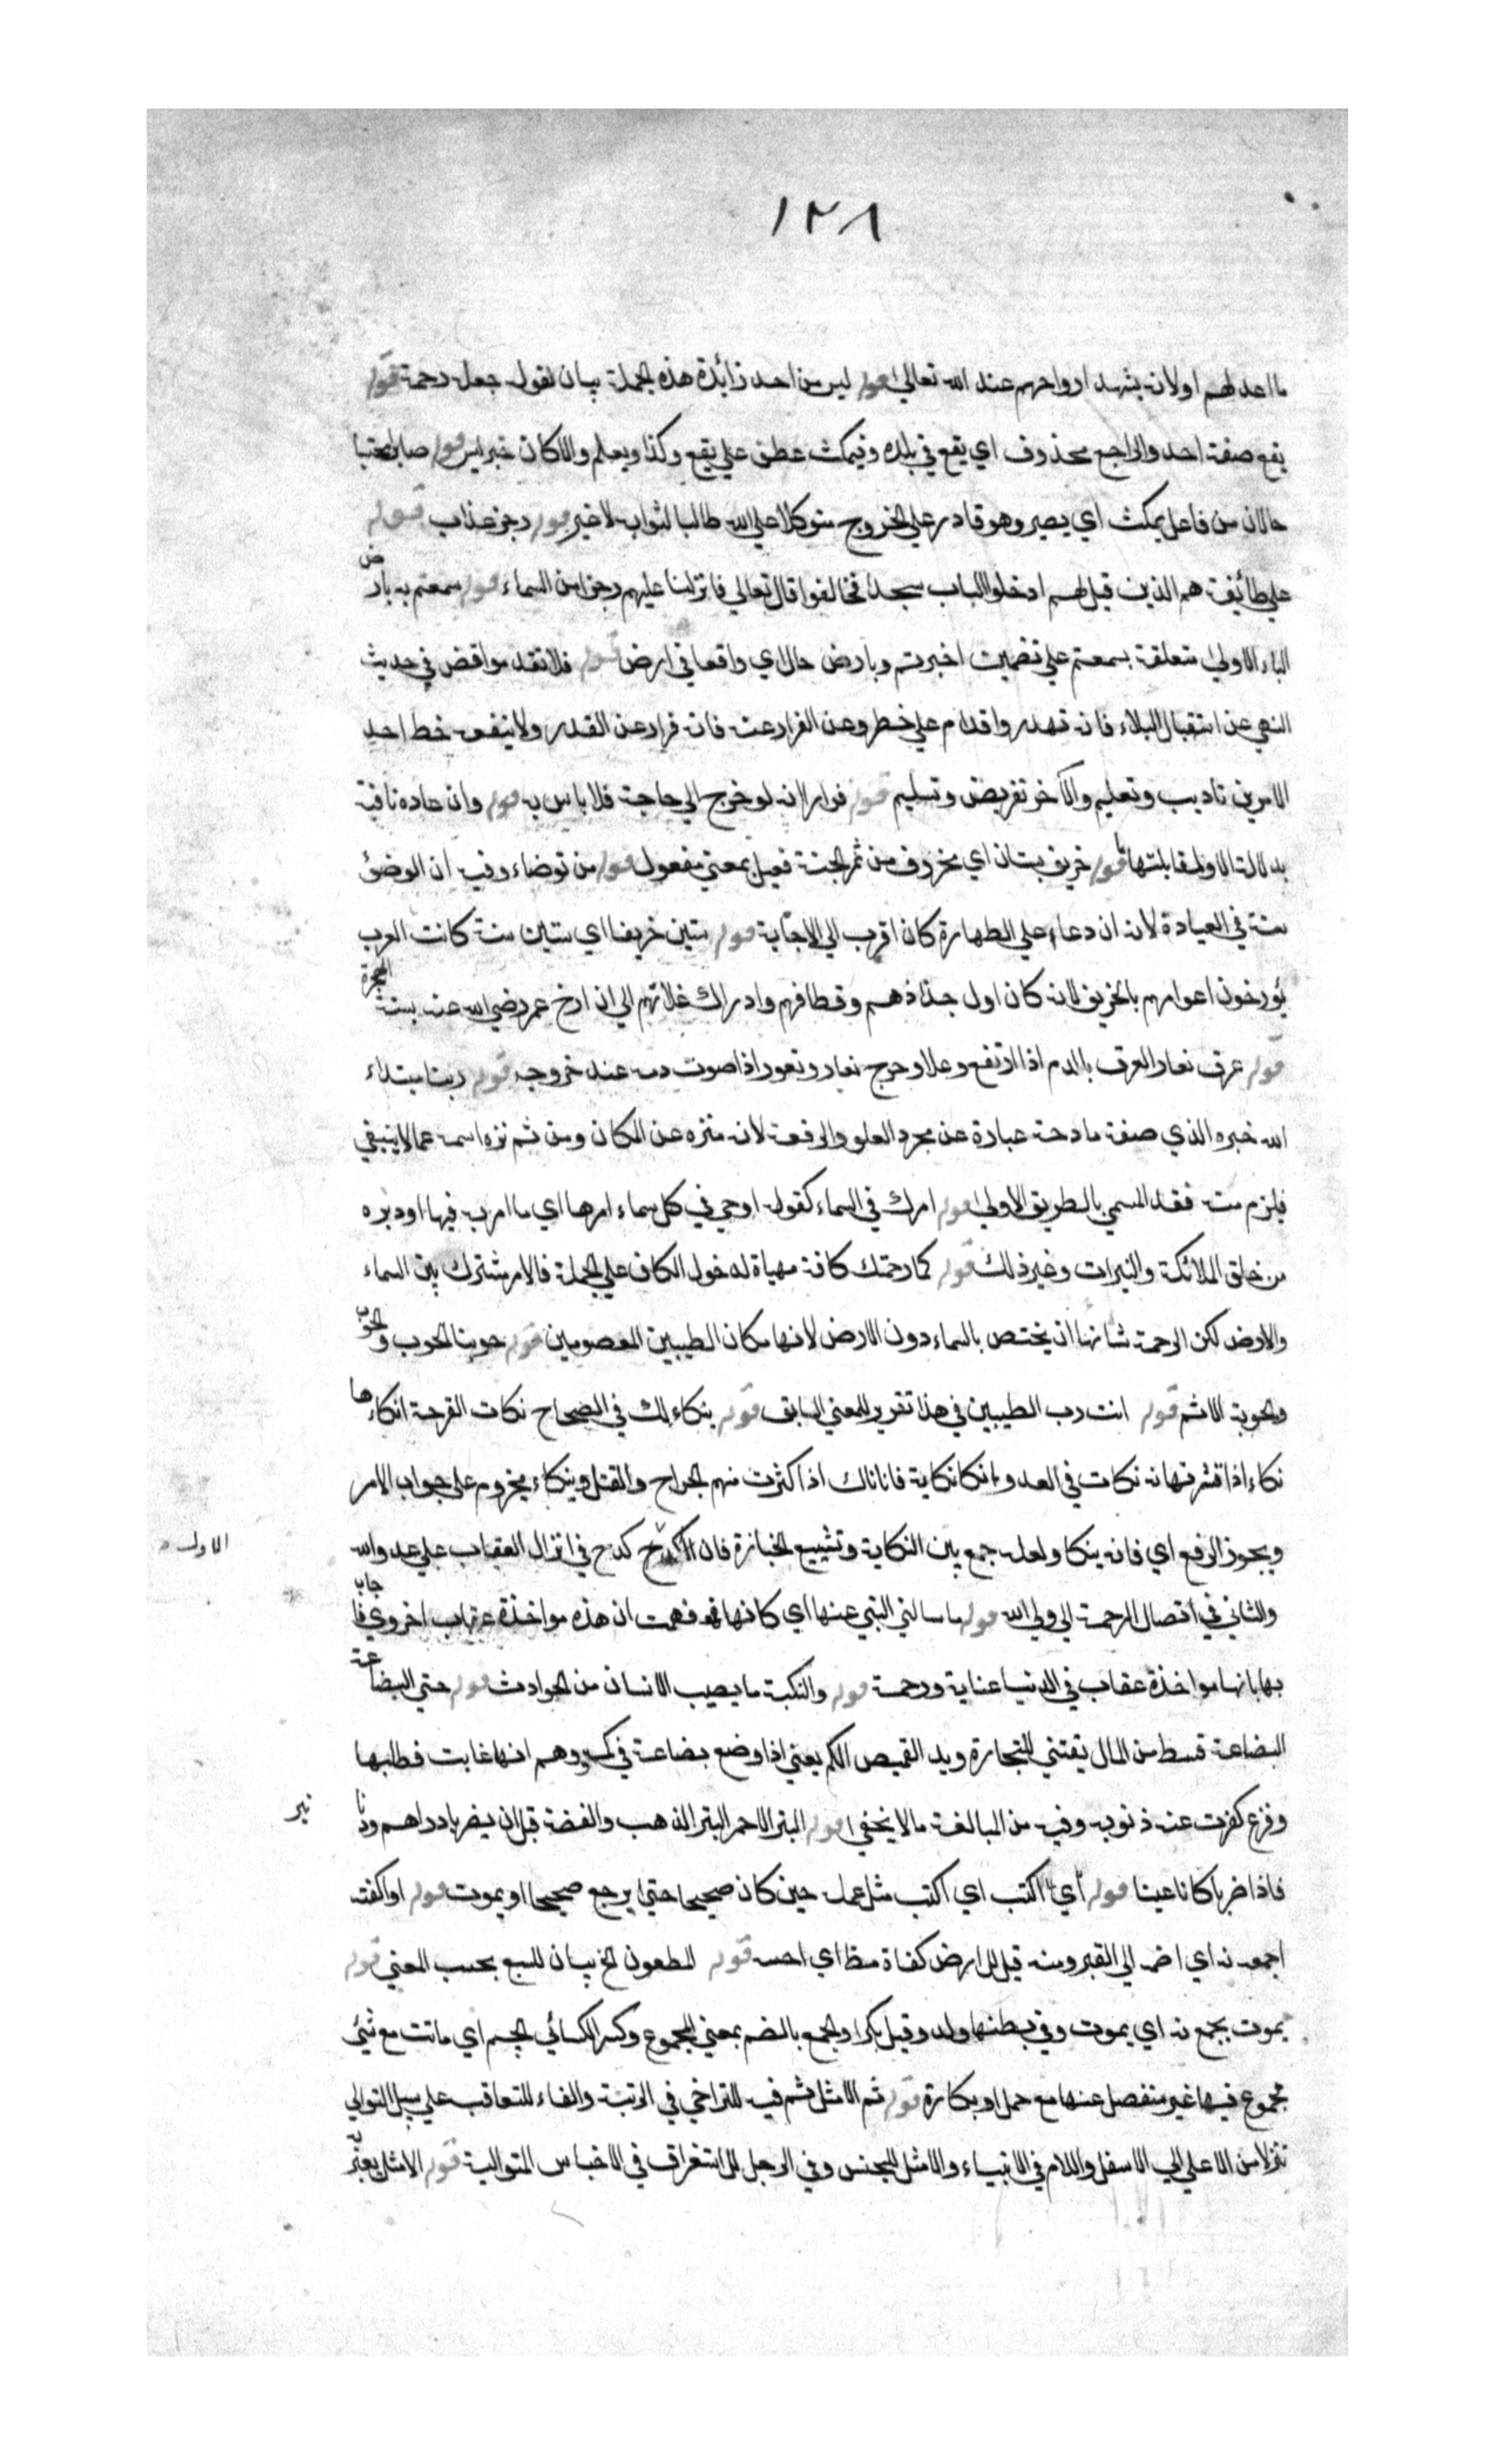 ١٢٨
ما اعد لهم او لانه يشهد ارواحهم عند الله تعالى قوله ليس من احد زائدة هذه الجملة بيان لقوله جعله رحمة قوله
يقع صفة احد والراجع محذوف اي يقع في بلده وفيمكث عطف علي يقع وكذا ويعلم والاكان خبر ليس قوله صابرا محتسبا
حالان من فاعل يمكث اي يصبر وهو قادر علي الخروج متوكلا علي الله طالبا لثوابه لا غير قوله رجز عذاب قوله
علي طائفة هم الذين قيل لهم ادخلوا الباب سجدا فخالفوا قال تعالي فانزلنا عليهم رجزا من السماء قوله سمعتم به بارض
الباء الاولى متعلقة بسمعتم علي تضمين اخبرتم وبارض حال اي واقعا في ارض قوله فلا تقدموا قض في حديث
النهي عن استقبال البلاء فانه تهور واقدام علي خطر وعن الفرار عنه فانه فرار عن القدر ولا ينفعه خط احد
الامرين تاديب وتعليم والآخر تفويض وتسليم قوله فرارا لانه لو خرج الي حاجة فلا باس به قوله وان عاده نافية
بدلالة الا ولمقابلتها قوله خريف بستان اي مخروف من ثمر الجنة فعيل بمعني مفعول قوله من توضاء وفيه ان الوضئ
سنة في العيادة لانه ان دعاء علي الطهارة كان اقرب الي الاجابة قوله ستين خريفا اي ستين سنة كانت العرب
يؤرخون اعوامهم بالخريف لانه كان اول جذاذهم وقطافهم وادراك غلاتهم الي ان ارخ عمر رضي الله عنه بسنة الهجرة
قوله عرق نعار العرق بالدم اذا ارتفع وعلا وجرح نعار ونعور اذا صوت دمه عند خروجه قوله ربنا مبتداء
الله خبره الذي صفة مادحة عبارة عن مجرد العلو والرفعة لانه منزه عن المكان ومن ثم نزه اسمه عما لا ينبغي
فيلزم منه فقد المسمي بالطريق الاولى قوله امرك في السماء كقوله اوحي في كل سماء امرها اي ما امر به فيها او دبره
من خلق الملائكة والنيرات وغير ذلك قوله كما رحمتك كافة مهياة لدخول الكاف علي الجملة فالامر مشترك بين السماء
والارض لكن الرحمة شانها ان يختص بالسماء دون الارض لانها مكان الطيبين المعصومين قوله حوبنا الحوب والحوب
والحوبة الاثم قوله انت رب الطيبين في هذا تقرير للمعني السابق قوله ينكاء لك في الصحاح نكات القرحة انكاءها
نكاء اذا قشرتها نه نكات في العدو انكا نكاية فانا ناك اذا كثرت منهم الجراح والقتل وينكاء مجزوم علي جواب الامر
ويجوز الرفع اي فانه ينكا ولعله جمع بين النكاية وتشييع الجنازة فان الاول كدح في انزال العقاب علي عدو الله
والثاني في اتصال الرحمة الي ولي الله قوله ما سالني النبي عنها اي كانها قد فهمت ان هذه مواخذة عقاب اخروي فاجاب
بها بانها مواخذة عقاب في الدنيا عناية ورحمة قوله والنكبة ما يصيب الانسان من الحوادث قوله حتي البضاعة
البضاعة قسط من المال تقتني للتجارة ويد القميص الكم يعني اذا وضع بضاعة في كمه ووهم انها غابت فطلبها
وفزع كفرت عنه ذنوبه وفيه من المبالغة ما لا يخفى قوله التبر الاحمر التبر الذهب والفضة قبل ان يضربا دراهم ودنانير
فاذا ضربا كانا عينا قوله اي اكتب اي اكتب مثل عمله حين كان صحيحا حتي يرجع صحيحا او يموت قوله او اكفته
اجمعه نه اي اضمه الي القبر ومنه قيل للارض كفاة قوله المطعون الخ بيان للسبع بحسب المعني قوله
يموت بجمع نه اي يموت وفي بطنها ولد وقيل بكرا والجمع بالضم بمعني المجموع وكسر الكسائي الجيم اي ماتت مع شئ
مجموع فيها غير منفصل عنها مع حمل او بكارة قوله ثم الامثل ثم فيه للتراخي في الرتبة والفاء للتعاقب علي سبيل التوالي
تنزلا من الاعلي الي الاسفل واللام في الانبياء والامثل للجنس وفي الرجل للاستغراق في الاجناس المتوالية قوله الامثل يعبر به